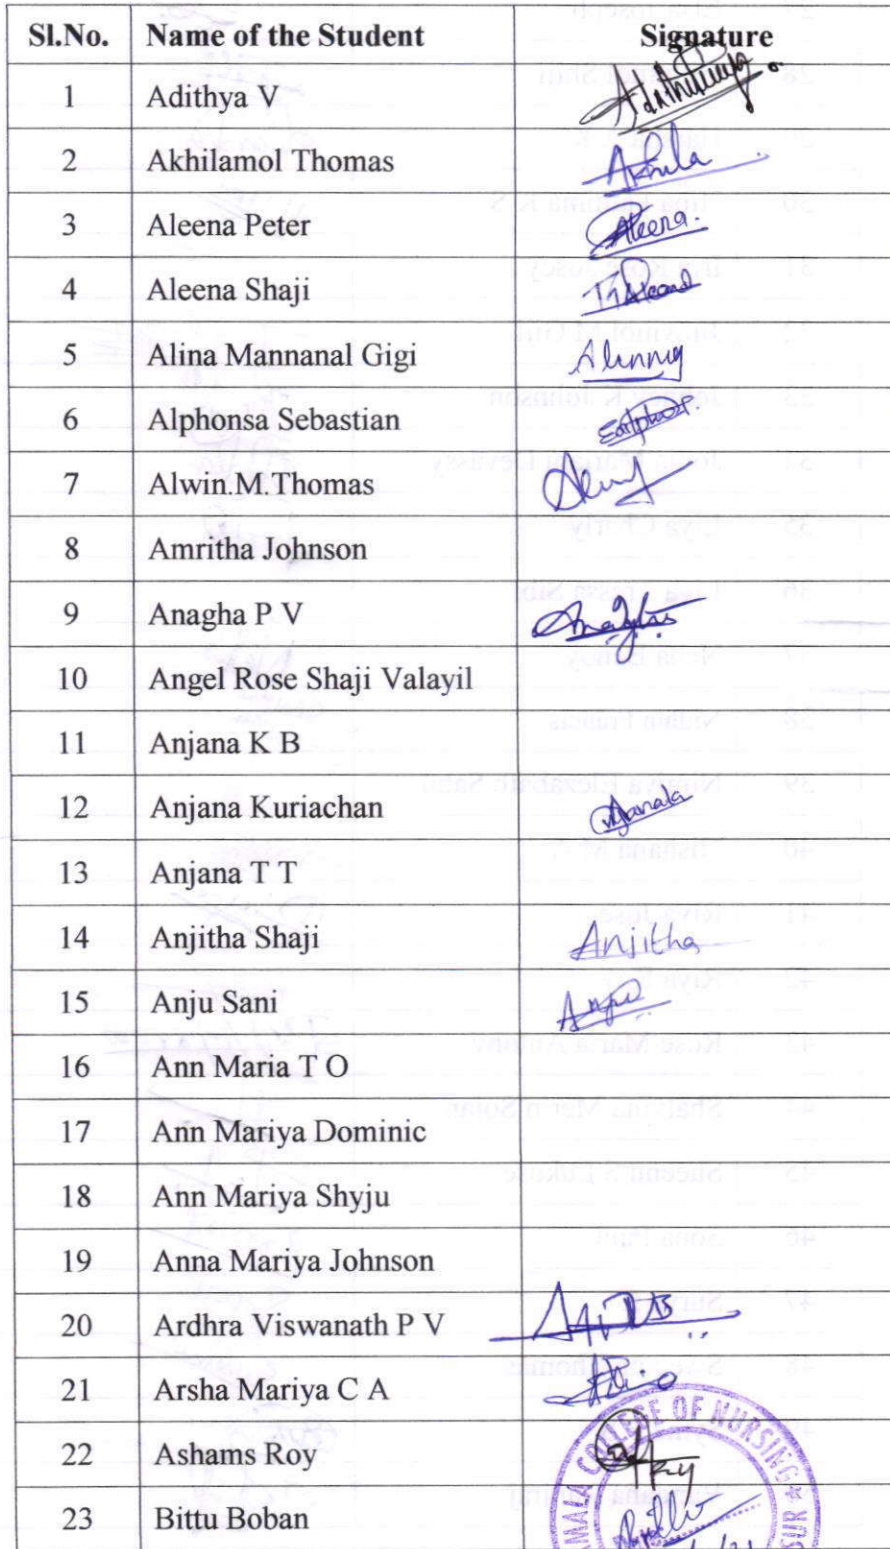 Sl.No. Name of the Student Signature
1 Adithya V Adithyaa
2 Akhilamol Thomas Akhila
3 Aleena Peter Aleena.
4 Aleena Shaji
5 Alina Mannanal Gigi
6 Alphonsa Sebastian
7 Alwin.M.Thomas
8 Amritha Johnson
9 Anagha P V
10 Angel Rose Shaji Valayil
11 Anjana K B
12 Anjana Kuriachan
13 Anjana T T
14 Anjitha Shaji Anjitha
15 Anju Sani Anju
16 Ann Maria T O
17 Ann Mariya Dominic
18 Ann Mariya Shyju
19 Anna Mariya Johnson
20 Ardhra Viswanath P V
21 Arsha Mariya C A
22 Ashams Roy
23 Bittu Boban
COLLEGE OF NURSING